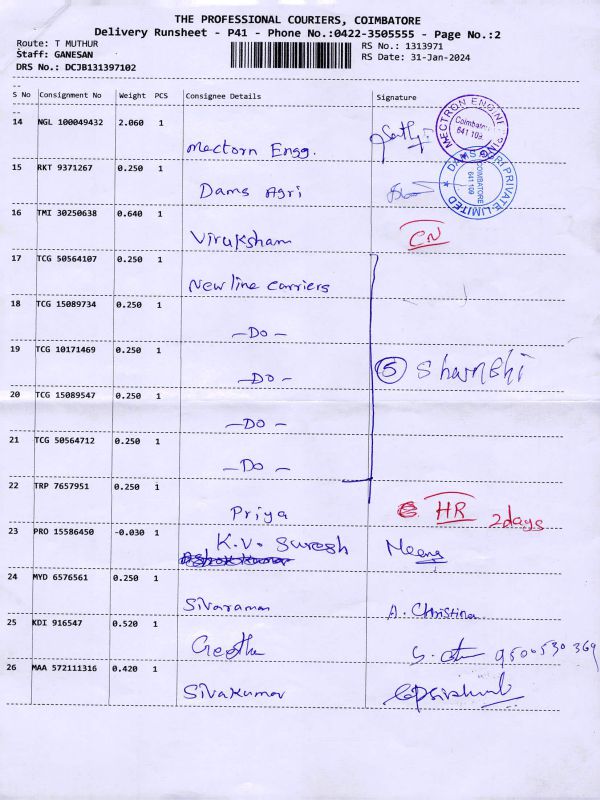 THE PROFESSIONAL COURIERS, COIMBATORE
Delivery Runsheet - P41 - Phone No.:0422-3505555 - Page No.:2
Route: T MUTHUR
Staff: GANESAN
DRS No.: DCJB131397102
RS No.: 1313971
RS Date: 31-Jan-2024
S No Consignment No Weight PCS Consignee Details Signature
14 NGL 100049432 2.060 1
Mectorn Engg.
MECTRON ENGINEERING
Coimbatore
641 109
15 RKT 9371267 0.250 1
Dams Agri
DAMS AGRI PRIVATE LIMITED
COIMBATORE
641 109
16 TMI 30250638 0.640 1
Viruksham CN
17 TCG 50564107 0.250 1
New line carriers
18 TCG 15089734 0.250 1
-Do-
19 TCG 10171469 0.250 1
-Do- 5
20 TCG 15089547 0.250 1
-Do-
21 TCG 50564712 0.250 1
-Do-
22 TRP 7657951 0.250 1
Priya HR 2days
23 PRO 15586450 -0.030 1
K.V. Suresh Meena
24 MYD 6576561 0.250 1
Sivaraman A. Christina
25 KDI 916547 0.520 1
Geetha
26 MAA 572111316 0.420 1
Sivakumar